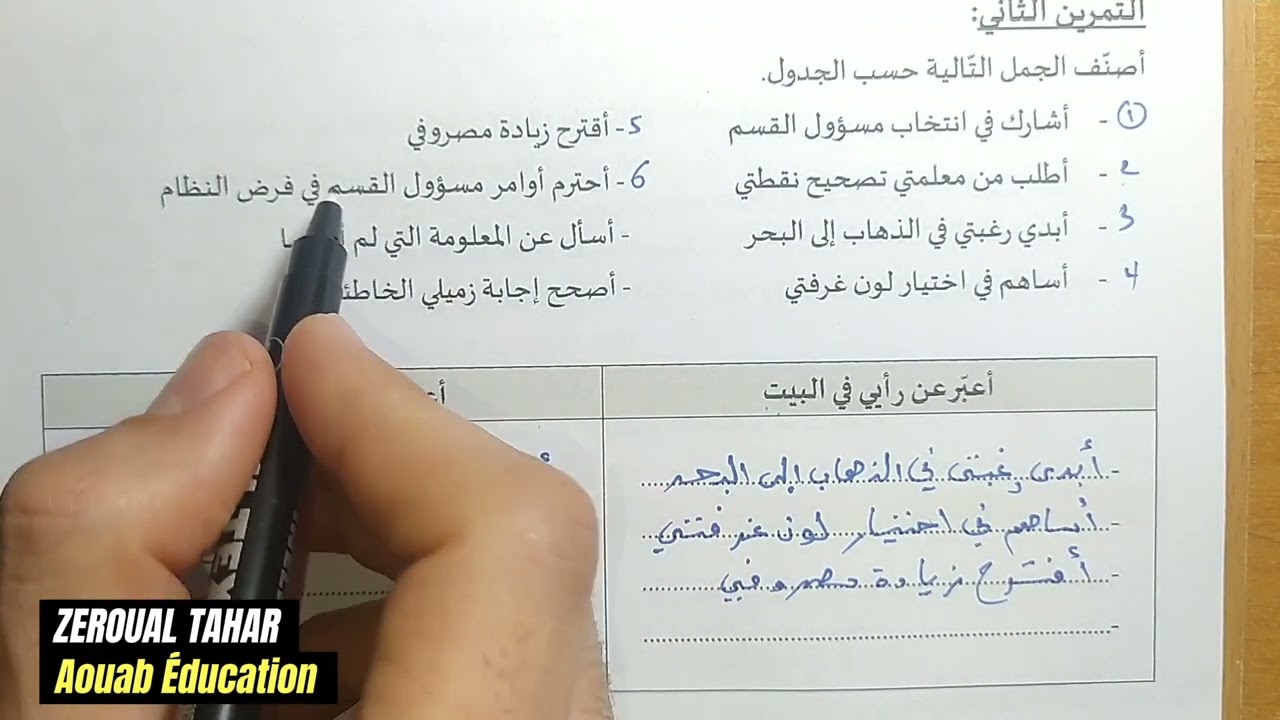 التمرين الثاني:
أصنّف الجمل التّالية حسب الجدول.
① - أشارك في انتخاب مسؤول القسم
2 - أطلب من معلمتي تصحيح نقطتي
3 - أبدي رغبتي في الذهاب إلى البحر
4 - أساهم في اختيار لون غرفتي
5 - أقترح زيادة مصروفي
6 - أحترم أوامر مسؤول القسم في فرض النظام
- أسأل عن المعلومة التي لم
- أصحح إجابة زميلي
أعبّر عن رأيي في البيت
- أبدي رغبتي في الذهاب إلى البحر
- أساهم في اختيار لون غرفتي
- أقترح زيادة مصروفي
-
ZEROUAL TAHAR
Aouab Éducation